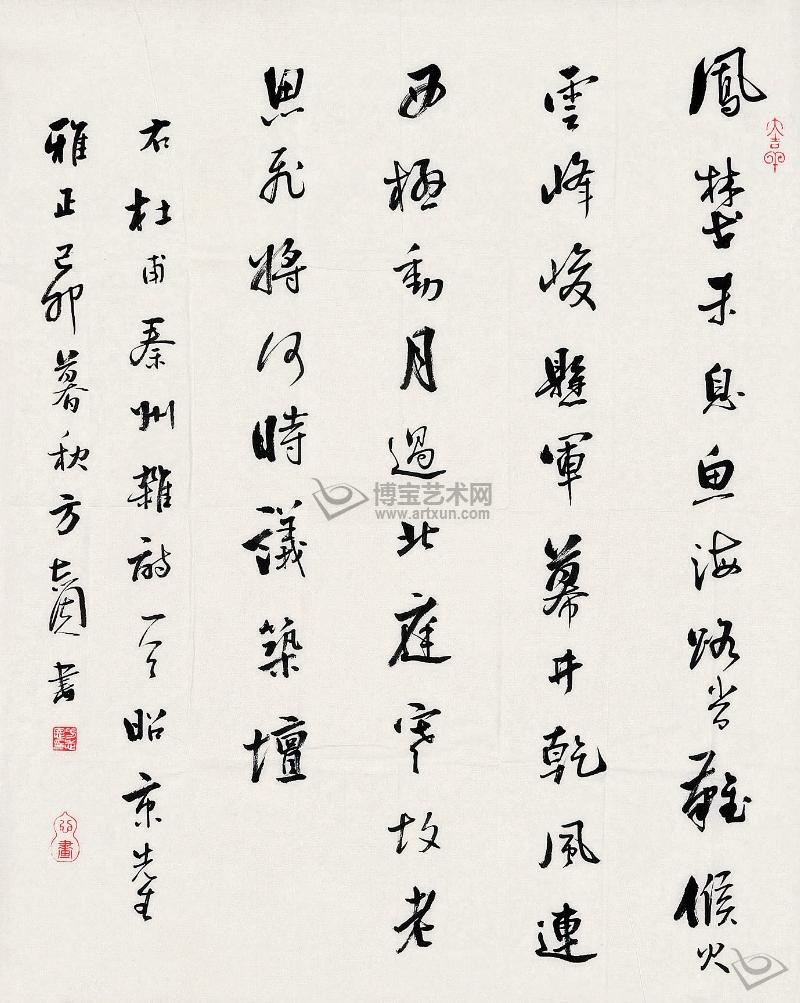 鳳林戈未息魚海路常難候火
雲峰峻懸軍幕井乾風連
西極動月過北庭寒故老
思飛將何時議築壇
右杜甫秦州雜詩一首昭京先生
雅正己卯暮秋方書
大吉羊
博宝艺术网
www.artxun.com